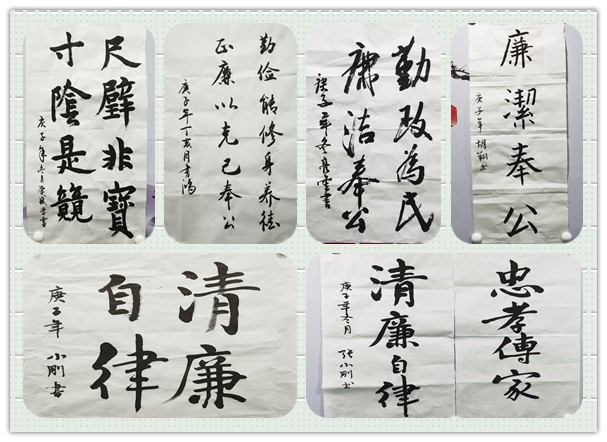 尺璧非寶
寸陰是競
庚子年冬月
勤俭能修身养德
正廉以克己奉公
庚子年丁亥月书
勤政為民
廉洁奉公
庚子年冬 書
廉潔奉公
庚子年 胡翔书
清廉
自律
庚子年 小刚書
忠孝傳家
清廉自律
庚子年冬月 张小刚书